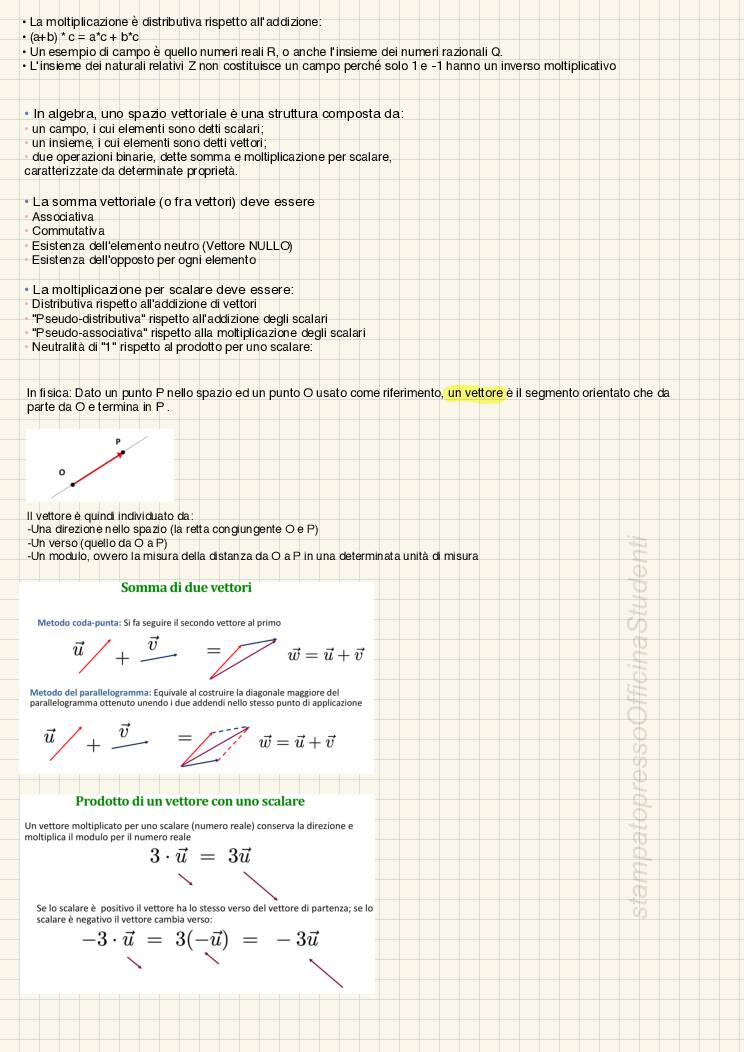 • La moltiplicazione è distributiva rispetto all'addizione:
• (a+b) * c = a*c + b*c
• Un esempio di campo è quello numeri reali R, o anche l'insieme dei numeri razionali Q.
• L'insieme dei naturali relativi Z non costituisce un campo perché solo 1 e -1 hanno un inverso moltiplicativo
• In algebra, uno spazio vettoriale è una struttura composta da:
• un campo, i cui elementi sono detti scalari;
• un insieme, i cui elementi sono detti vettori;
• due operazioni binarie, dette somma e moltiplicazione per scalare,
caratterizzate da determinate proprietà.
• La somma vettoriale (o fra vettori) deve essere
• Associativa
• Commutativa
• Esistenza dell'elemento neutro (Vettore NULLO)
• Esistenza dell'opposto per ogni elemento
• La moltiplicazione per scalare deve essere:
• Distributiva rispetto all'addizione di vettori
• "Pseudo-distributiva" rispetto all'addizione degli scalari
• "Pseudo-associativa" rispetto alla moltiplicazione degli scalari
• Neutralità di "1" rispetto al prodotto per uno scalare:
In fisica: Dato un punto P nello spazio ed un punto O usato come riferimento, un vettore è il segmento orientato che da
parte da O e termina in P .
P
O
Il vettore è quindi individuato da:
-Una direzione nello spazio (la retta congiungente O e P)
-Un verso (quello da O a P)
-Un modulo, ovvero la misura della distanza da O a P in una determinata unità di misura
Somma di due vettori
Metodo coda-punta: Si fa seguire il secondo vettore al primo
u⃗ + v⃗ = w⃗ = u⃗ + v⃗
Metodo del parallelogramma: Equivale al costruire la diagonale maggiore del
parallelogramma ottenuto unendo i due addendi nello stesso punto di applicazione
u⃗ + v⃗ = w⃗ = u⃗ + v⃗
Prodotto di un vettore con uno scalare
Un vettore moltiplicato per uno scalare (numero reale) conserva la direzione e
moltiplica il modulo per il numero reale
3 · u⃗ = 3u⃗
Se lo scalare è positivo il vettore ha lo stesso verso del vettore di partenza; se lo
scalare è negativo il vettore cambia verso:
−3 · u⃗ = 3(−u⃗) = − 3u⃗
stampatopressoOfficinaStudenti